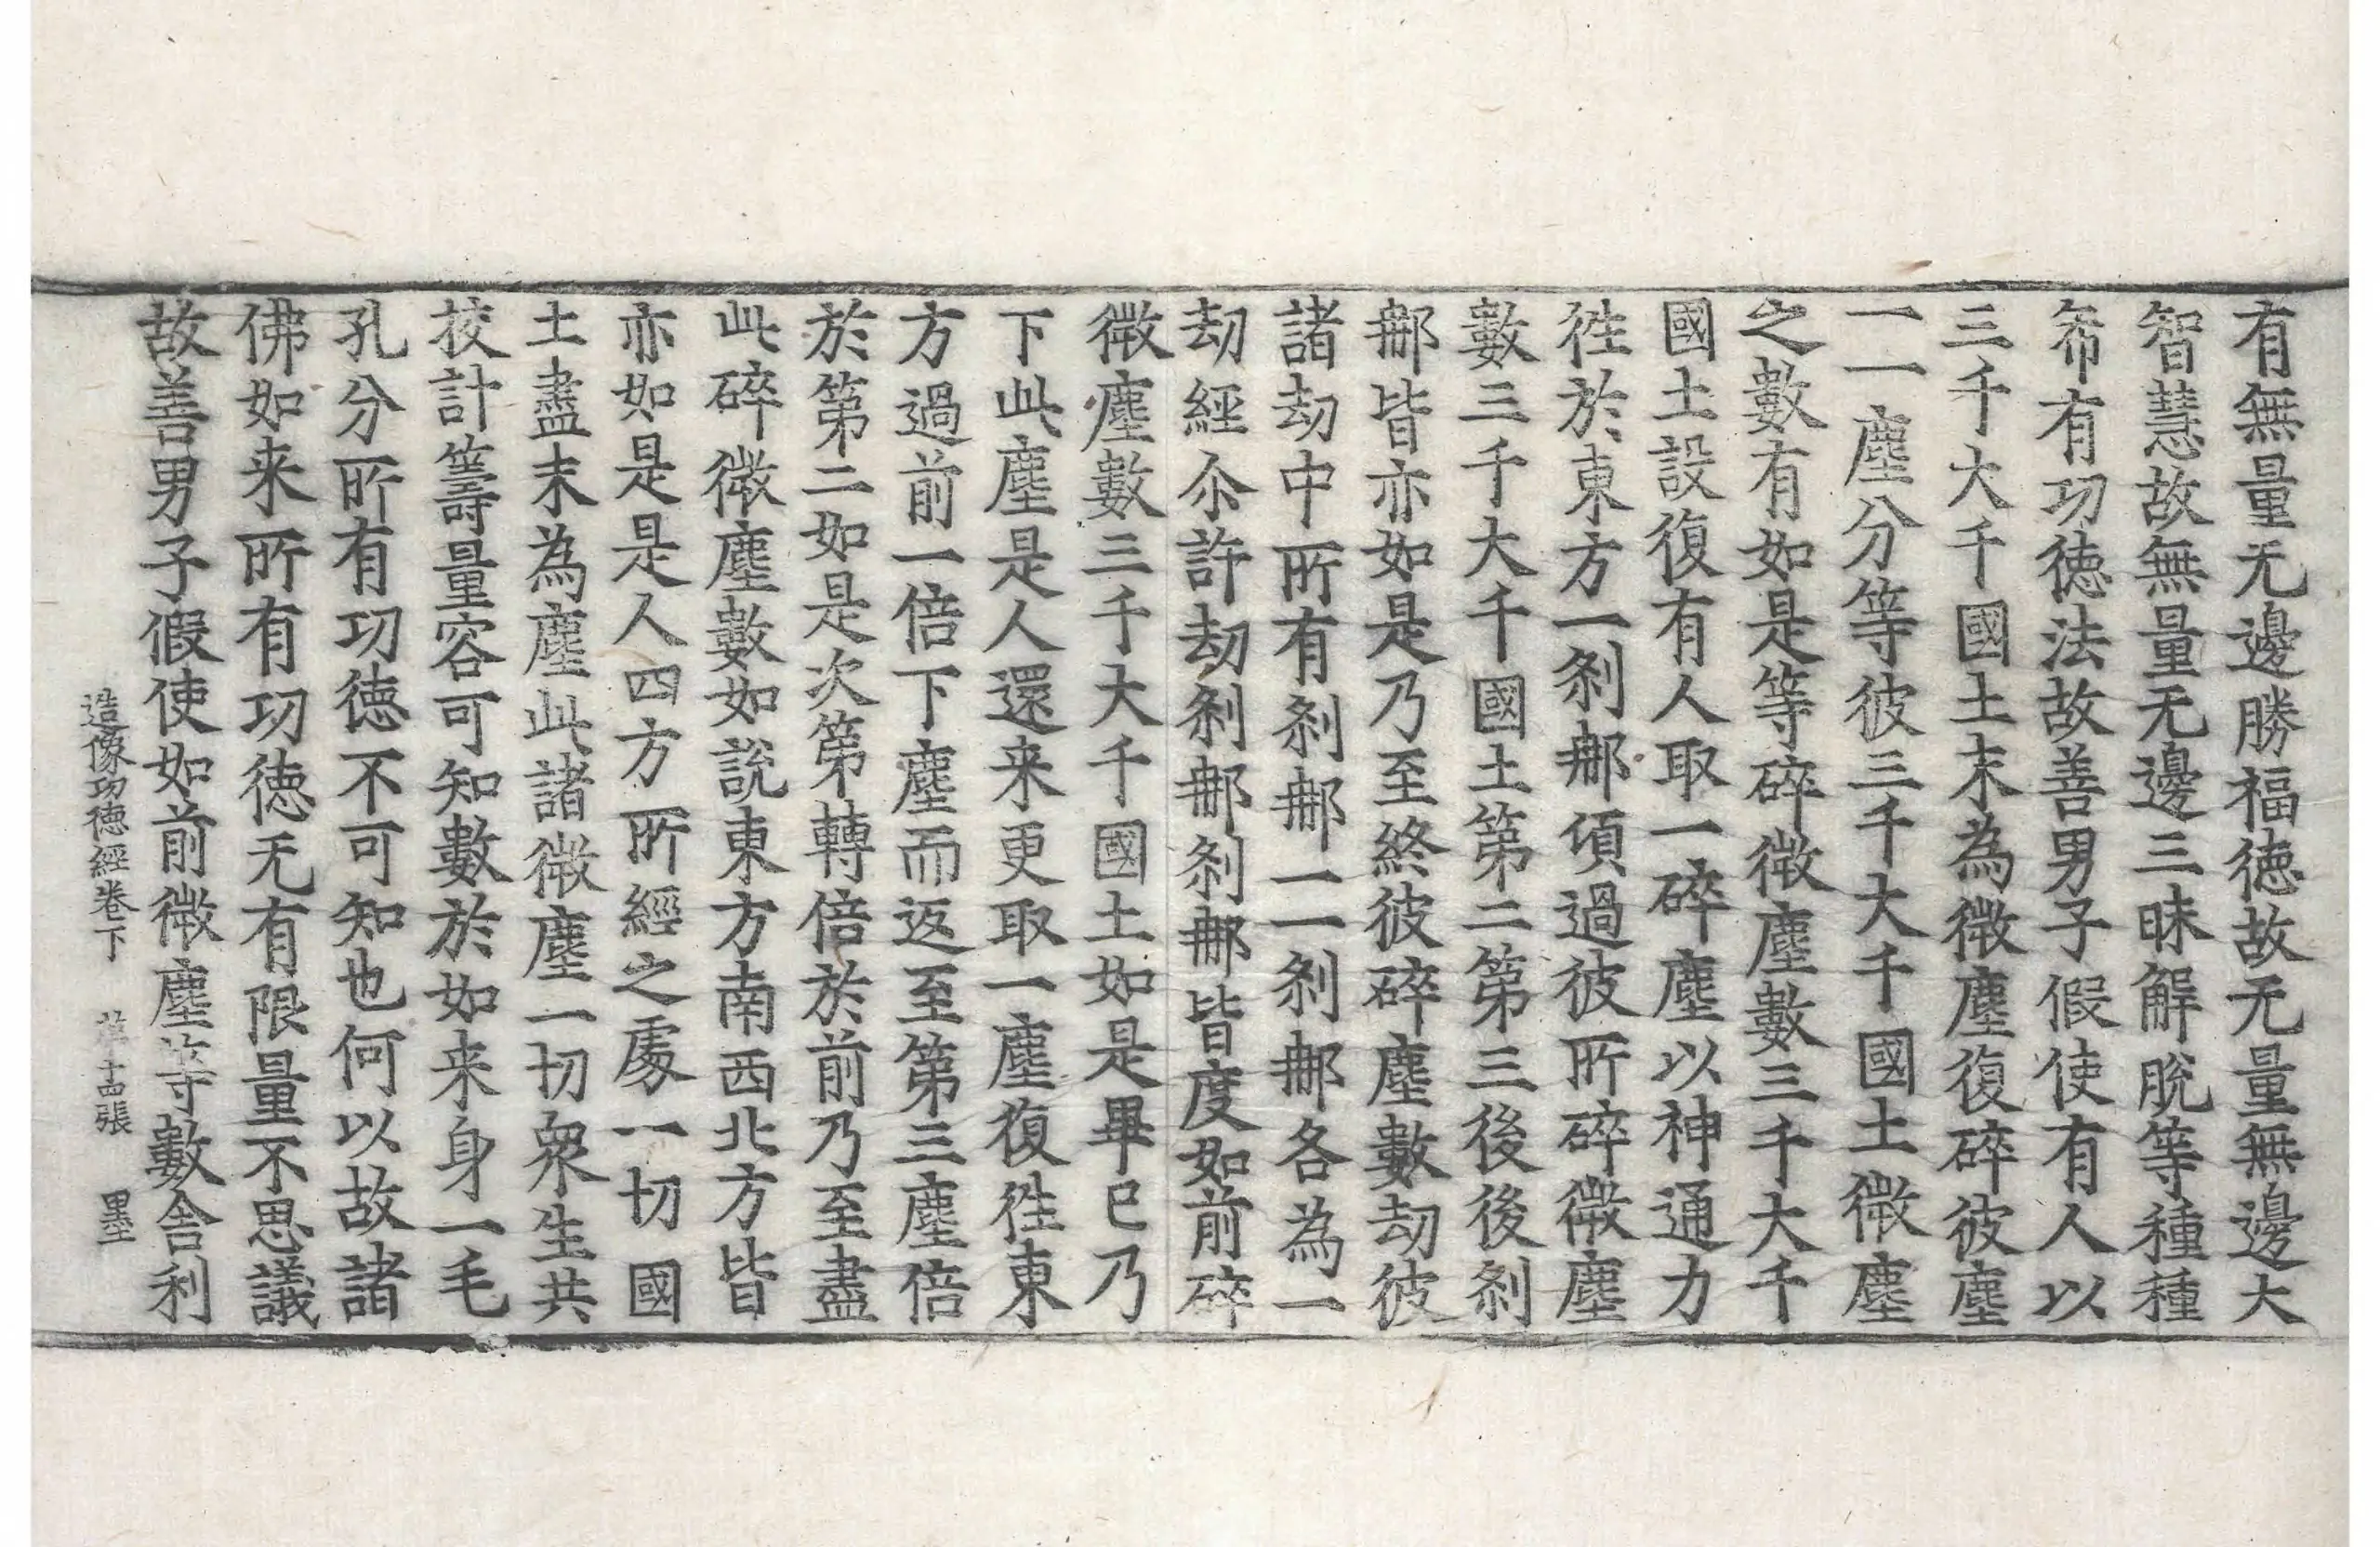 有無量无邊勝福德故无量無邊大
智慧故無量无邊三昧解脫等種種
希有功德法故善男子假使有人以
三千大千國土末為微塵復碎彼塵
一一塵分等彼三千大千國土微塵
之數有如是等碎微塵數三千大千
國土設復有人取一碎塵以神通力
徃於東方一剎那頃過彼所碎微塵
數三千大千國土第二第三後後剎
那皆亦如是乃至終彼碎塵數劫彼
諸劫中所有剎那一一剎那各為一
劫經尒許劫剎那剎那皆度如前碎
微塵數三千大千國土如是畢已乃
下此塵是人還来更取一塵復徃東
方過前一倍下塵而返至第三塵倍
於第二如是次第轉倍於前乃至盡
此碎微塵數如說東方南西北方皆
亦如是是人四方所經之處一切國
土盡末為塵此諸微塵一切衆生共
挍計籌量容可知數於如来身一毛
孔分所有功德不可知也何以故諸
佛如来所有功德无有限量不思議
故善男子假使如前微塵等數舍利
造像功德經卷下 第十四張 墨